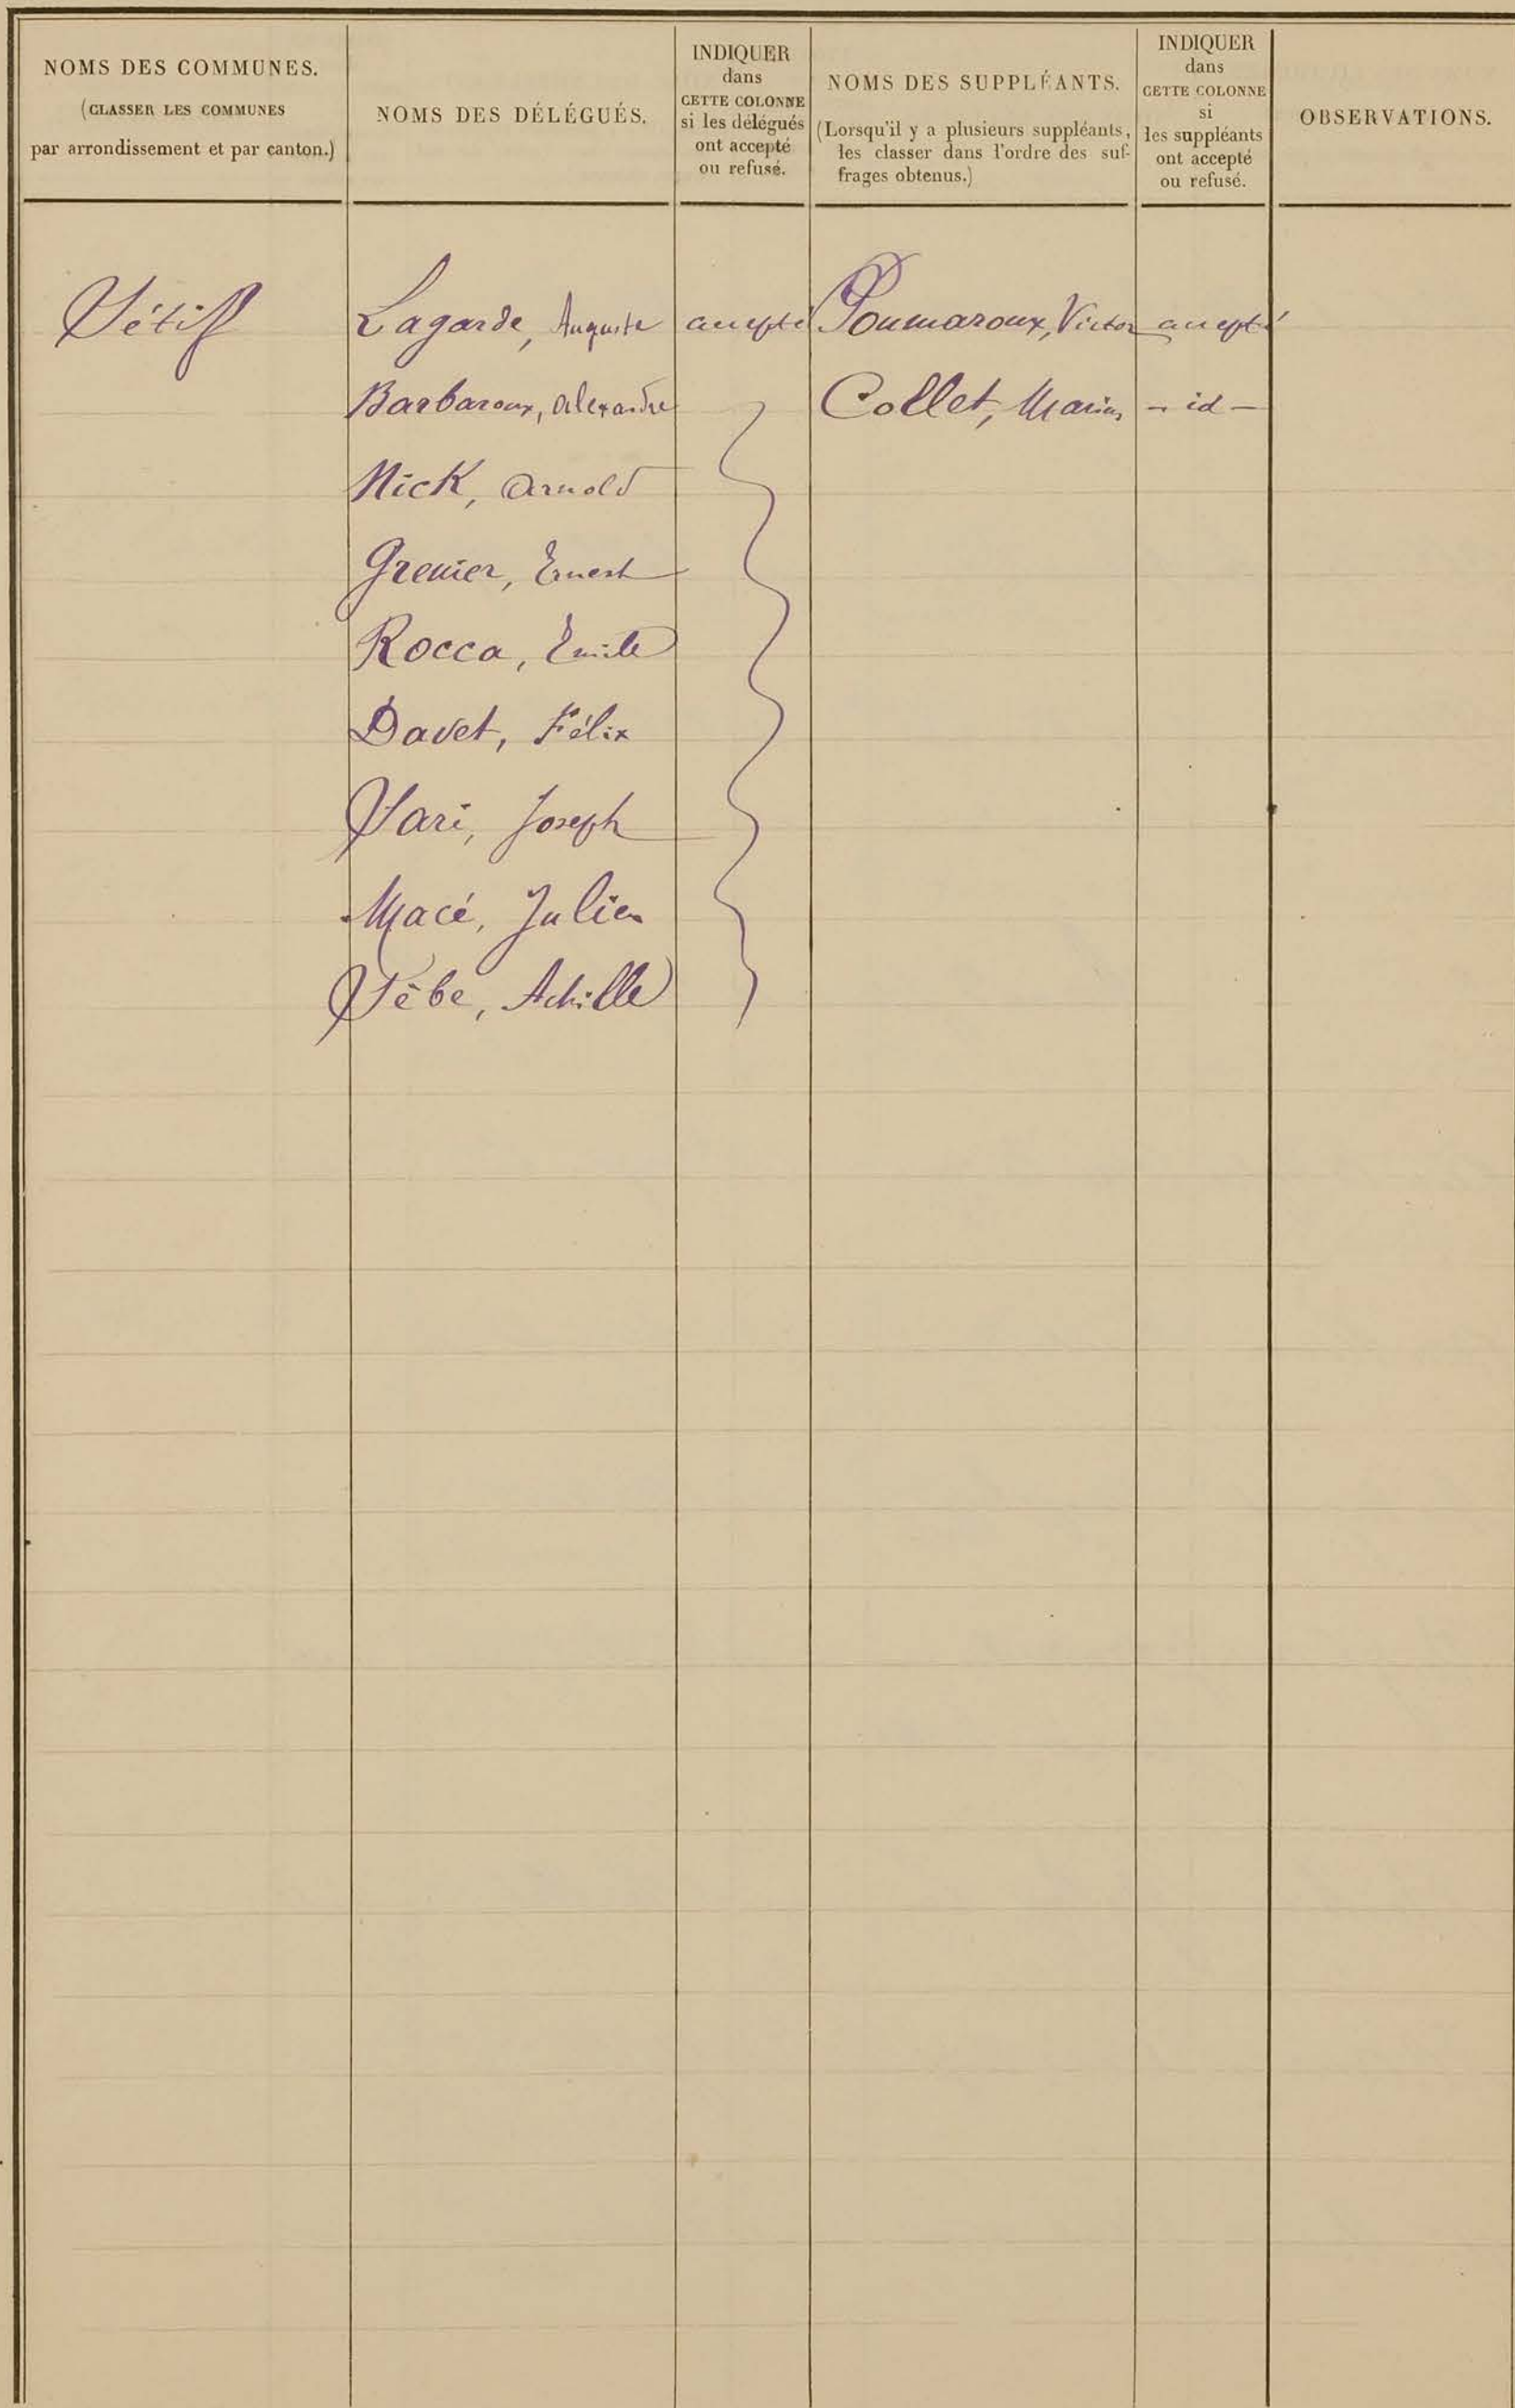 NOMS DES COMMUNES.
(CLASSER LES COMMUNES
par arrondissement et par canton.)
NOMS DES DÉLÉGUÉS.
INDIQUER
dans
CETTE COLONNE
si les délégués
ont accepté
ou refusé.
NOMS DES SUPPLÉANTS.
(Lorsqu'il y a plusieurs suppléants,
les classer dans l'ordre des suf-
frages obtenus.)
INDIQUER
dans
CETTE COLONNE
si
les suppléants
ont accepté
ou refusé.
OBSERVATIONS.
Sétif Lagarde, Auguste accepté Poumaroux, Victor accepté
Barbaroux, Alexandre Collet, Marius - id -
Nick, Arnold
Grenier, Ernest
Rocca, Emile
Davet, Félix
Sari, Joseph
Macé, Julien
Sèbe, Achille